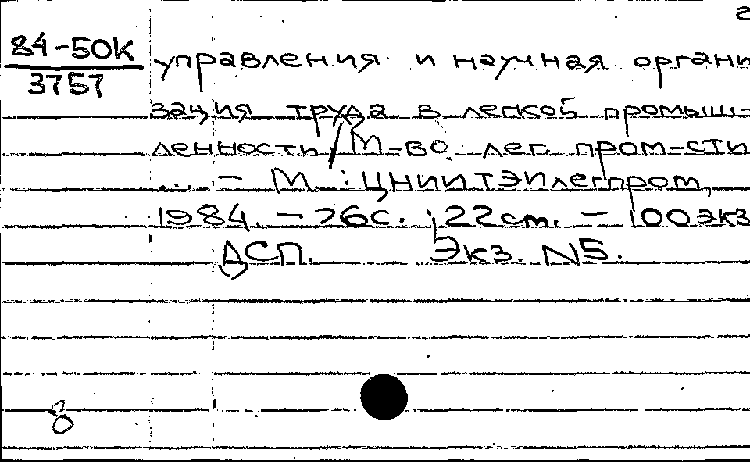 2
84-50К
3757
управления и научная органи
зация труда в легкой промыш-
ленности / М-во лег. пром-сти
... - М. : ЦНИИТЭИлегпром,
1984. - 26 с. ; 22 см. - 100 экз
ДСП. Экз. N5.
8